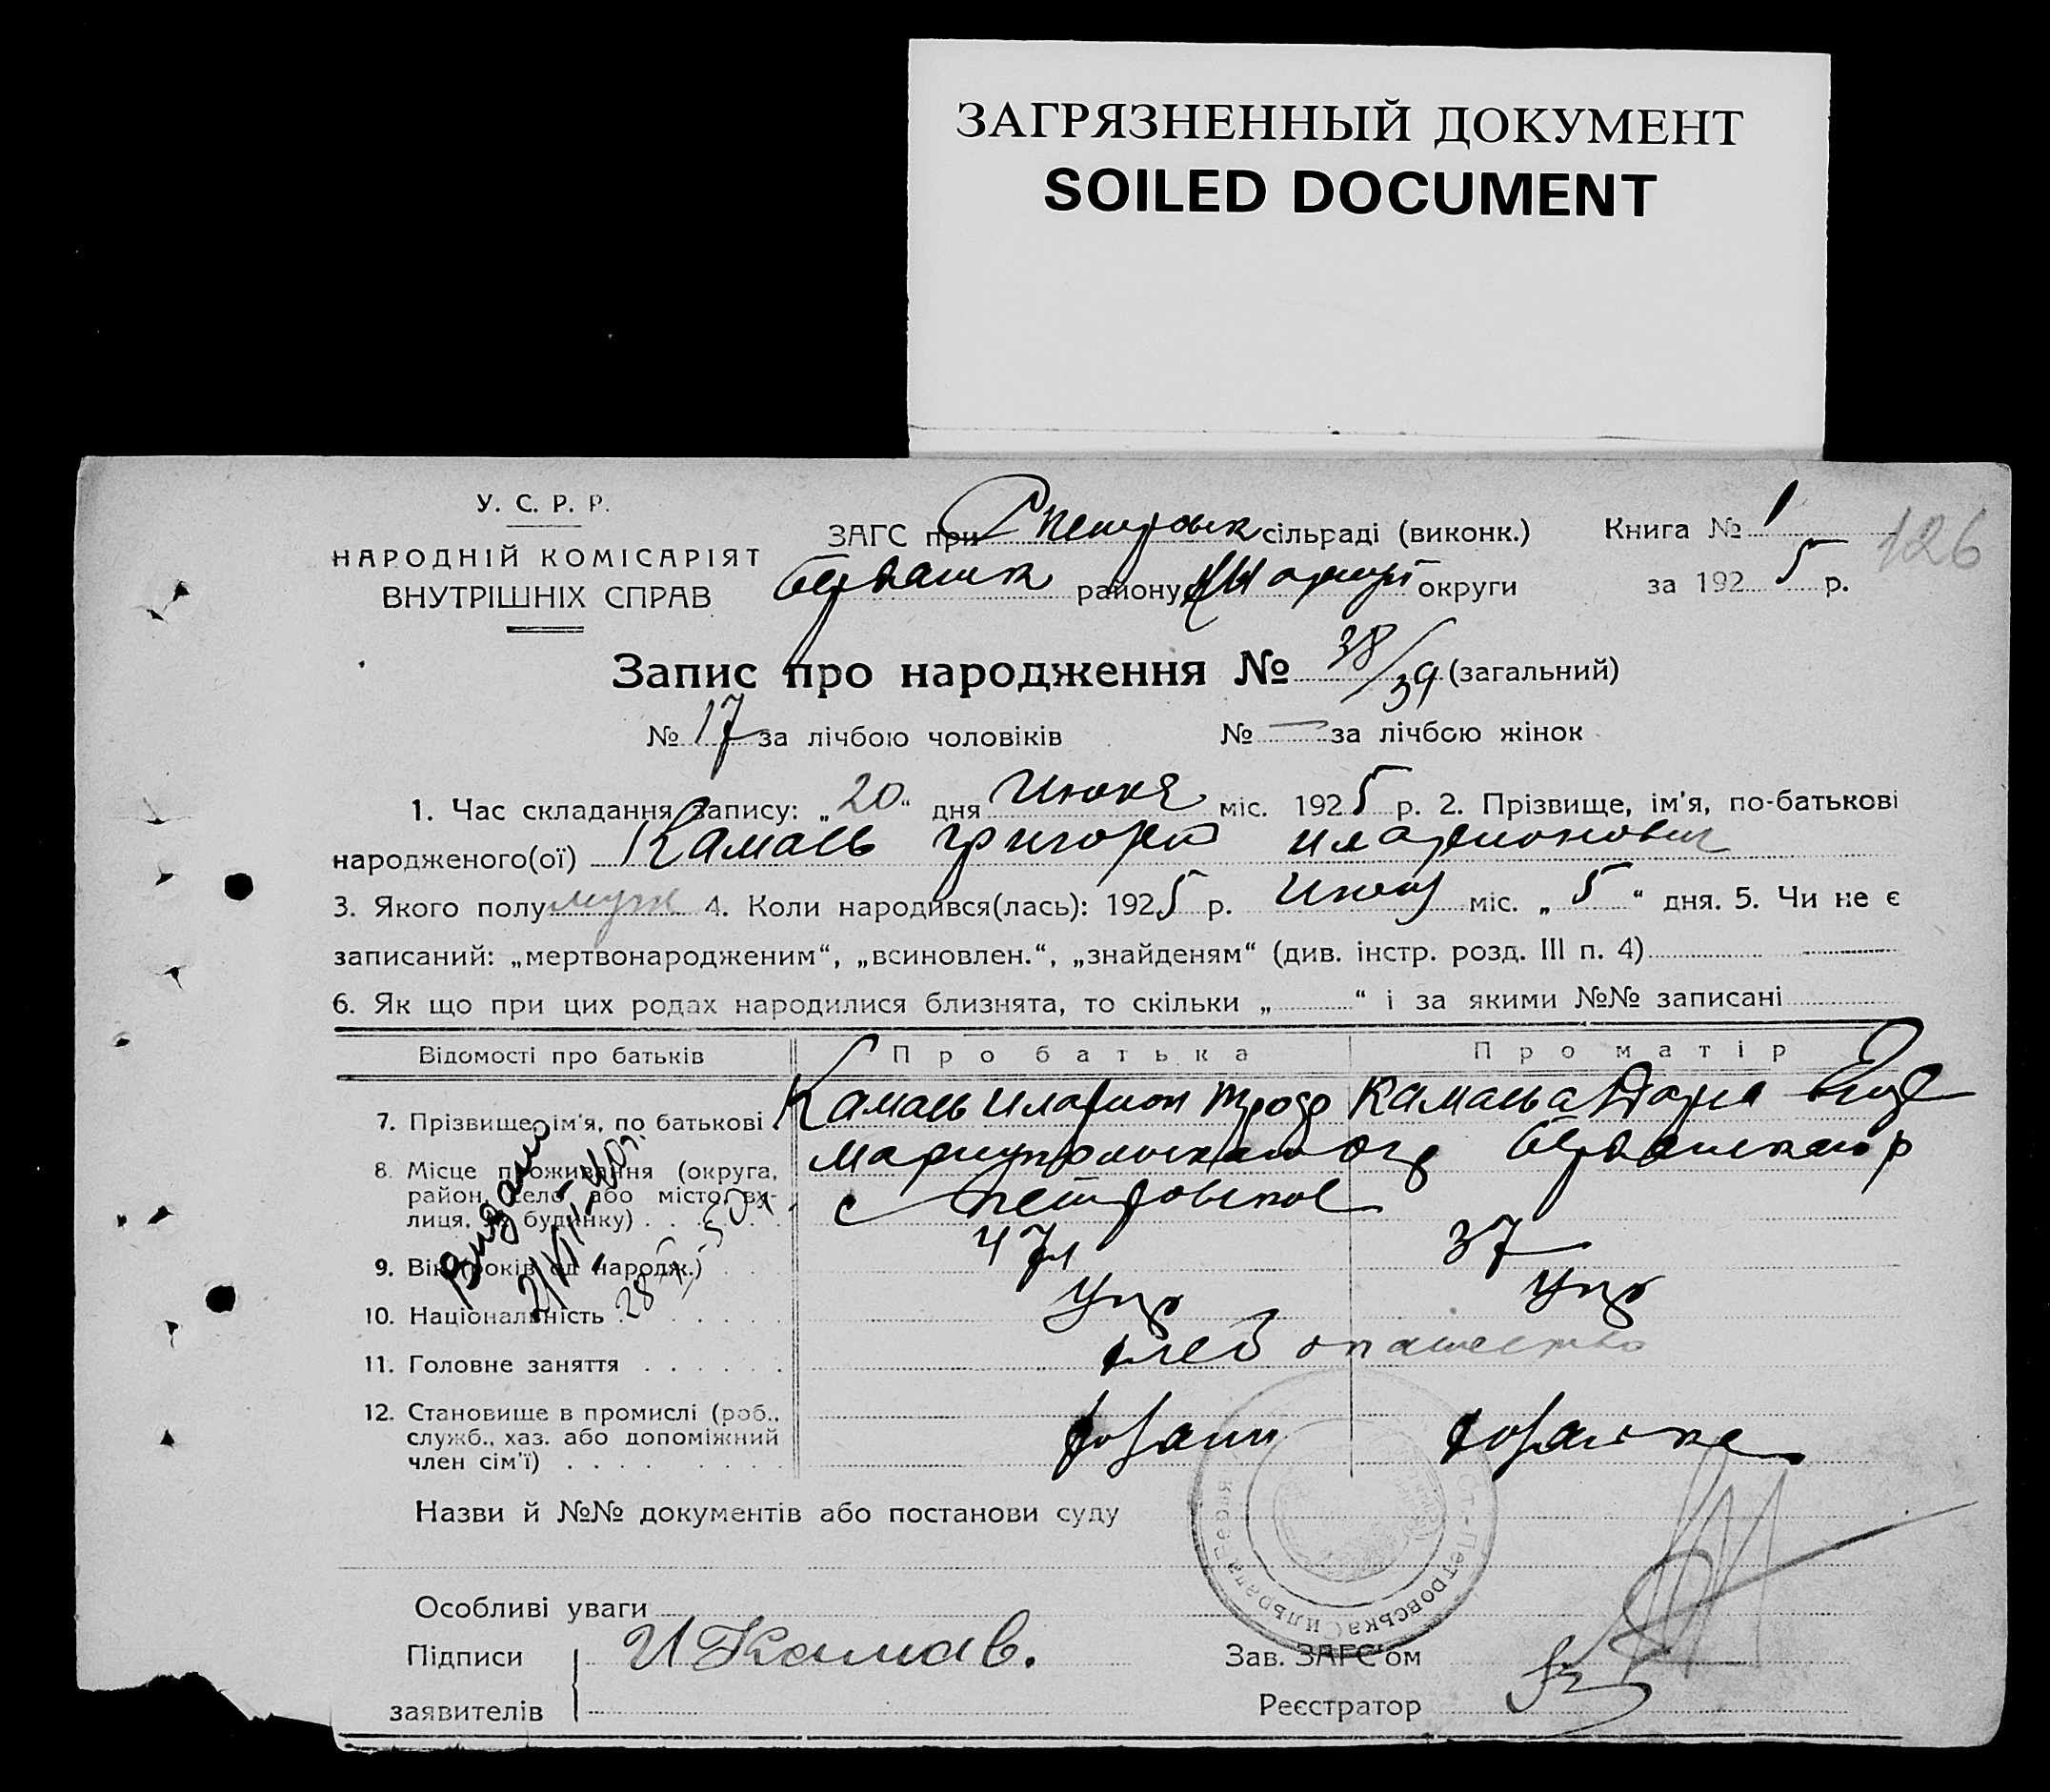 ЗАГРЯЗНЕННЫЙ ДОКУМЕНТ
SOILED DOCUMENT
У. С. Р. Р.
НАРОДНІЙ КОМІСАРІЯТ
ВНУТРІШНІХ СПРАВ
ЗАГС при Петровск сільраді (виконк.)
району округи
Книга № 1
126
за 1925 р.
Запис про народження № 38/39 (загальний)
№ 17 за лічбою чоловіків № — за лічбою жінок
1. Час складання запису: „20“ дня Июня міс. 1925 р. 2. Прізвище, ім'я, по-батькові
народженого(ої) Камась Григорий Иларионович
3. Якого полу муж 4. Коли народився(лась): 1925 р. Июня міс. „5“ дня. 5. Чи не є
записаний: „мертвонародженим“, „всиновлен.“, „знайденям“ (див. інстр. розд. III п. 4)
6. Як що при цих родах народилися близнята, то скільки „ “ і за якими №№ записані
Відомості про батьків Про батька Про матір
7. Прізвище, ім'я, по батькові Камась Иларион Камась Дария
8. Місце проживання (округа, район, село або місто, ву-лиця, № будинку) с Петровское
9. Вік (років од народж.) 47 37
10. Національність Укр Укр
11. Головне заняття хлебопашество
12. Становище в промислі (роб., служб., хаз. або допоміжний член сім'ї) хозяин хозяйка
Видано
Назви й №№ документів або постанови суду
Ст-Петровська Сильрада
Особливі уваги
Підписи И Камав.
заявителів
Зав. ЗАГС'ом
Реєстратор